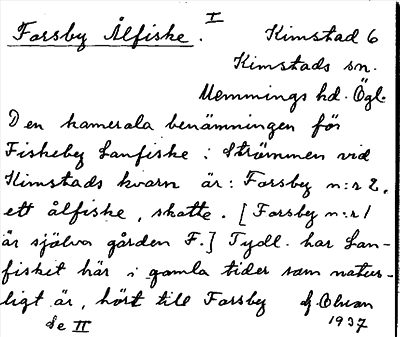 Forsby Ålfiske. I Kimstad 6
Kimstads sn.
Memmings hd. Ögl.
Den kamerala benämningen för
Fiskeby Lanfiske i Strömmen vid
Kimstads kvarn är: Forsby n:r 2,
ett ålfiske, skatte. [Forsby n:r 1
är själva gården F.] Tydl. har Lan-
fisket här i gamla tider som natur-
ligt är, hört till Forsby
Se II 1937